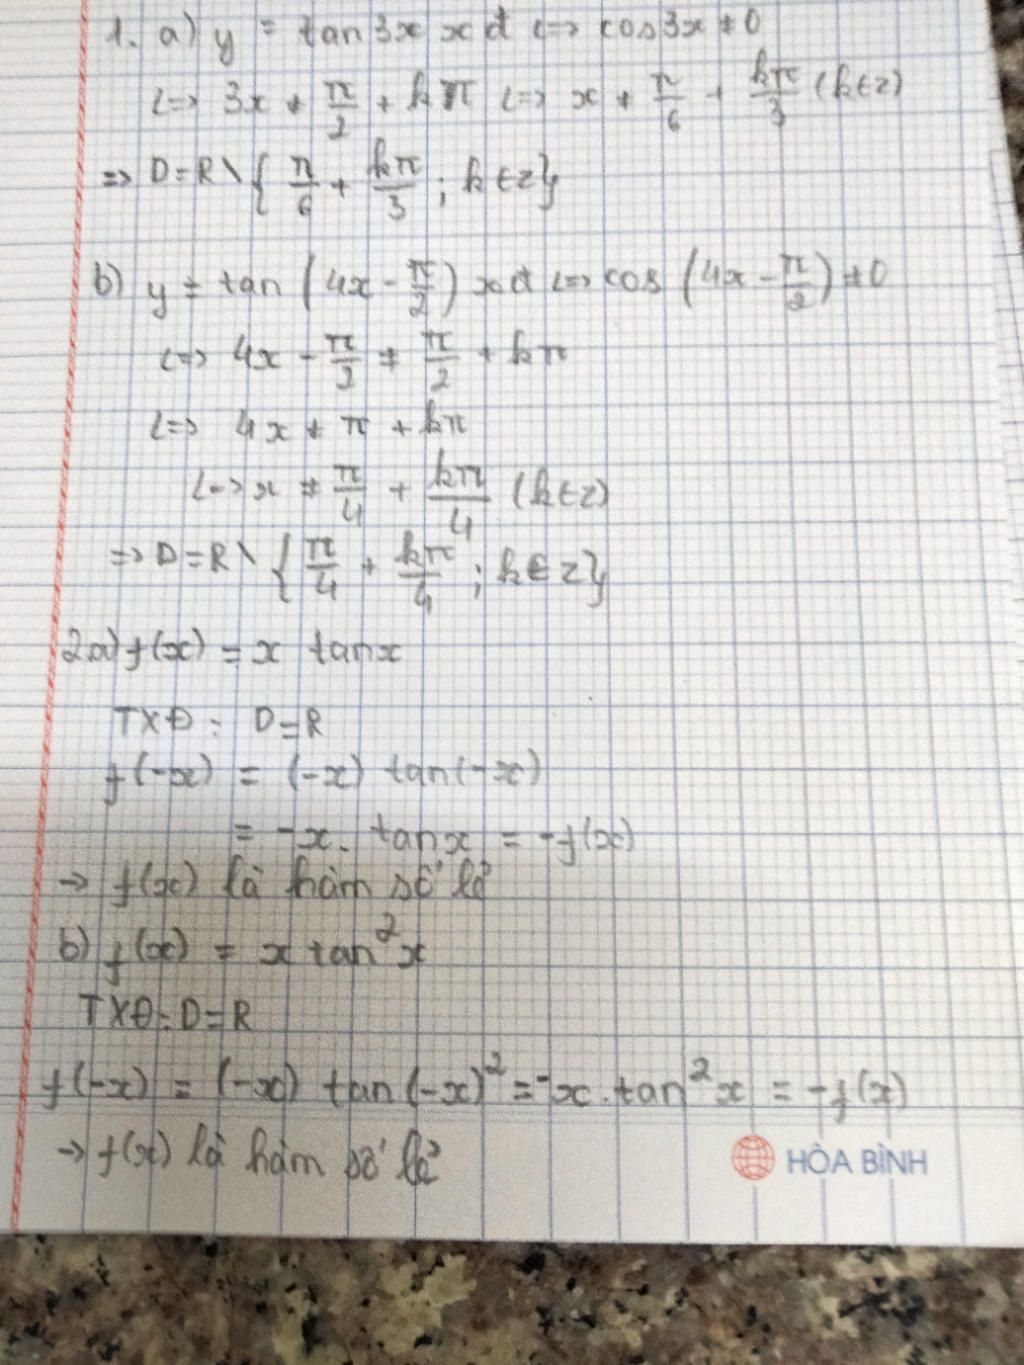 1. a) y = tan 3x xđ <=> cos3x ≠ 0
<=> 3x ≠ π/2 + kπ <=> x ≠ π/6 + kπ/3 (k∈z)
=> D = R \ { π/6 + kπ/3 ; k∈z}
b) y = tan (4x - π/2) xđ <=> cos (4x - π/2) ≠ 0
<=> 4x - π/2 ≠ π/2 + kπ
<=> 4x ≠ π + kπ
<=> x ≠ π/4 + kπ/4 (k∈z)
=> D = R \ { π/4 + kπ/4 ; k∈z}
2a) f(x) = x tanx
TXĐ : D = R
f(-x) = (-x) tan(-x)
= -x. tanx = -f(x)
→ f(x) là hàm số lẻ
b) f(x) = x tan²x
TXĐ : D = R
f(-x) = (-x) tan(-x)² = -x . tan²x = -f(x)
→ f(x) là hàm số lẻ
HÒA BÌNH